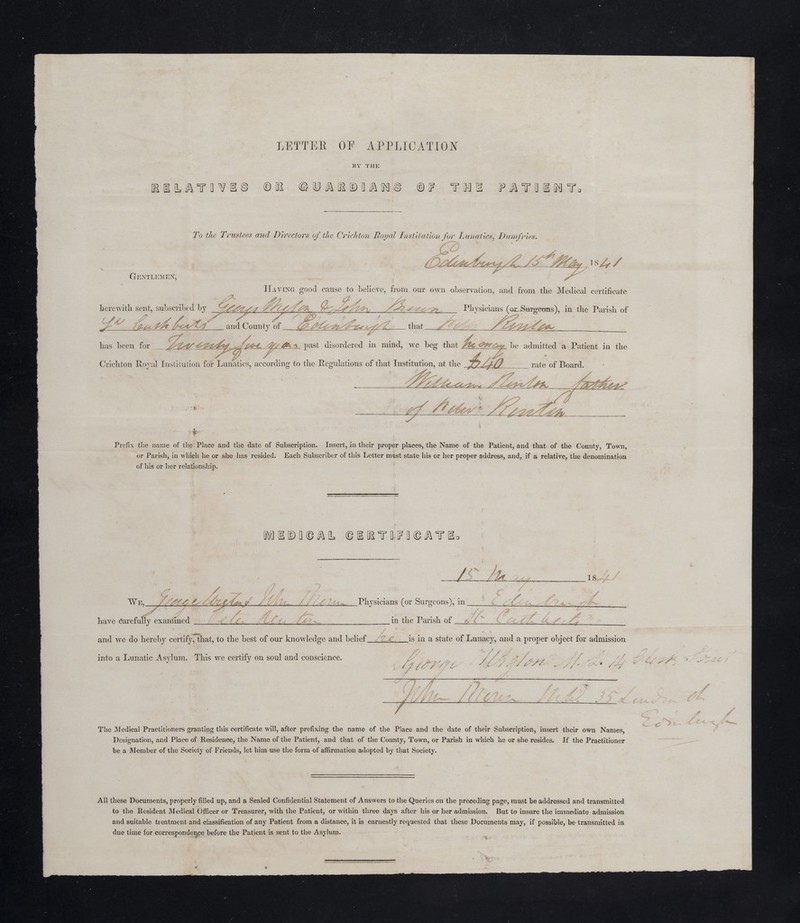 LETTER OF APPLICATION
BY THE
RELATIVES OR GUARDIANS OF THE PATIENT.
To the Trustees and Directors of the Crichton Royal Institution for Lunatics, Dumfries.
Edinburgh 15th May 1841
GENTLEMEN,
HAVING good cause to believe, from our own observation, and from the Medical certificate
herewith sent, subscribed by George Wyton & John Brown Physicians (or Surgeons), in the Parish of
St Cuthberts and County of Edinburgh that Peter Rinton
has been for Twenty five years past disordered in mind, we beg that he may be admitted a Patient in the
Crichton Royal Institution for Lunatics, according to the Regulations of that Institution, at the £40 rate of Board.
William Rinton father
of Peter Rinton
Prefix the name of the Place and the date of Subscription. Insert, in their proper places, the Name of the Patient, and that of the County, Town,
or Parish, in which he or she has resided. Each Subscriber of this Letter must state his or her proper address, and, if a relative, the denomination
of his or her relationship.
MEDICAL CERTIFICATE.
15 May 1841
WE, George John Brown Physicians (or Surgeons), in Edinburgh
have carefully examined Peter Rinton in the Parish of St Cuthberts
and we do hereby certify, that, to the best of our knowledge and belief he is in a state of Lunacy, and a proper object for admission
into a Lunatic Asylum. This we certify on soul and conscience.
George M.D. 14
John Brown M.D. 35 London St
Edinburgh
The Medical Practitioners granting this certificate will, after prefixing the name of the Place and the date of their Subscription, insert their own Names,
Designation, and Place of Residence, the Name of the Patient, and that of the County, Town, or Parish in which he or she resides. If the Practitioner
be a Member of the Society of Friends, let him use the form of affirmation adopted by that Society.
All these Documents, properly filled up, and a Sealed Confidential Statement of Answers to the Queries on the preceding page, must be addressed and transmitted
to the Resident Medical Officer or Treasurer, with the Patient, or within three days after his or her admission. But to insure the immediate admission
and suitable treatment and classification of any Patient from a distance, it is earnestly requested that these Documents may, if possible, be transmitted in
due time for correspondence before the Patient is sent to the Asylum.